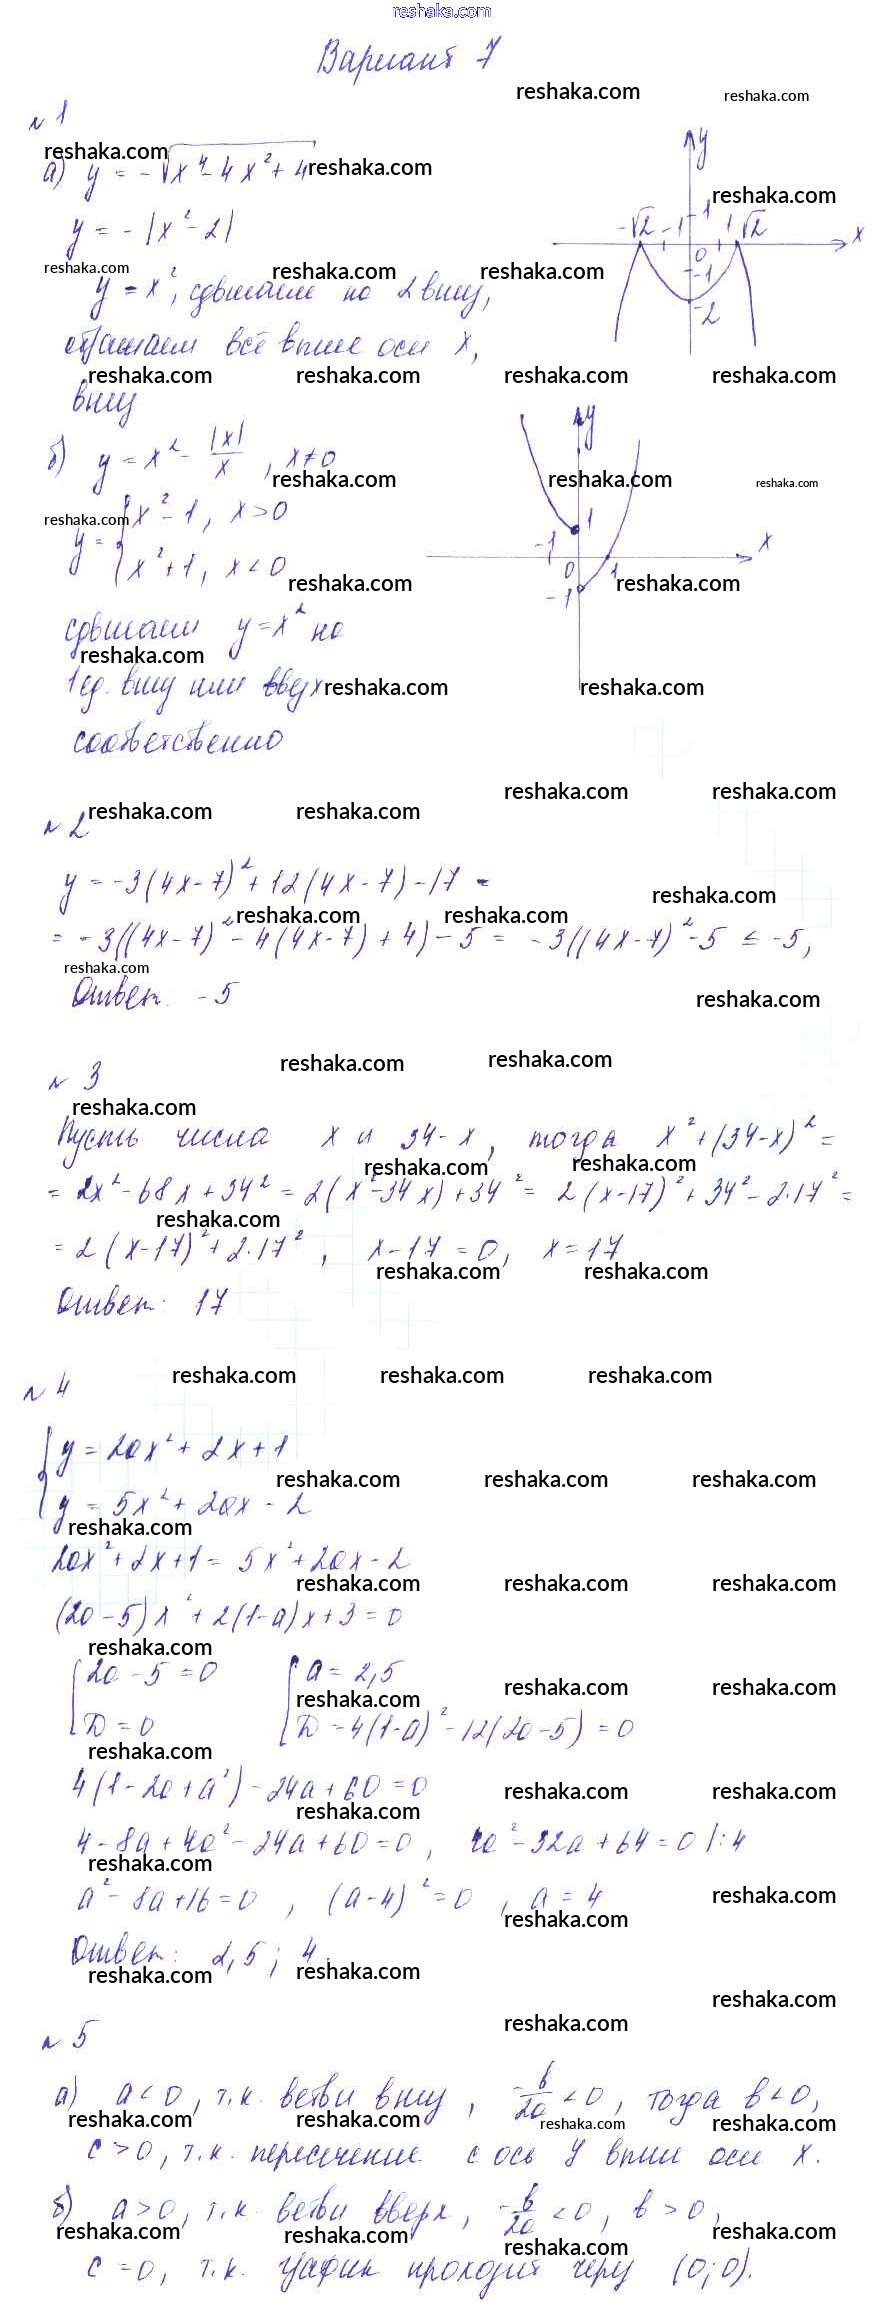 reshaka.com
Вариант 7
№ 1
а) y = -√(x⁴ - 4x² + 4)
y = -|x² - 2|
y = x², сдвигаем на 2 вниз,
отражаем всё выше оси x,
вниз
y
-√2 -1 1 1 √2 x
0
-1
-2
б) y = x² - |x|/x, x ≠ 0
y = { x² - 1, x > 0
x² + 1, x < 0
сдвигаем y = x² на
1 ед. вниз или вверх
соответственно
y
1
-1 x
0 1
-1
№ 2
y = -3(4x - 7)² + 12(4x - 7) - 17 =
= -3((4x - 7)² - 4(4x - 7) + 4) - 5 = -3((4x - 7)² - 5 ≤ -5,
Ответ: -5
№ 3
Пусть числа x и 34 - x, тогда x² + (34 - x)² =
= 2x² - 68x + 34² = 2(x² - 34x) + 34² = 2(x - 17)² + 34² - 2·17² =
= 2(x - 17)² + 2·17², x - 17 = 0, x = 17
Ответ: 17
№ 4
{ y = 2ax² + 2x + 1
y = 5x² + 2ax - 2
2ax² + 2x + 1 = 5x² + 2ax - 2
(2a - 5)x² + 2(1 - a)x + 3 = 0
[ 2a - 5 = 0 [ a = 2,5
D = 0 D = 4(1 - a)² - 12(2a - 5) = 0
4(1 - 2a + a²) - 24a + 60 = 0
4 - 8a + 4a² - 24a + 60 = 0, 4a² - 32a + 64 = 0 |:4
a² - 8a + 16 = 0, (a - 4)² = 0, a = 4
Ответ: 2,5; 4.
№ 5
а) a < 0, т.к. ветви вниз, -b/2a < 0, тогда b < 0,
c > 0, т.к. пересечение с ось y выше оси x.
б) a > 0, т.к. ветви вверх, -b/2a < 0, b > 0,
c = 0, т.к. график проходит через (0; 0).